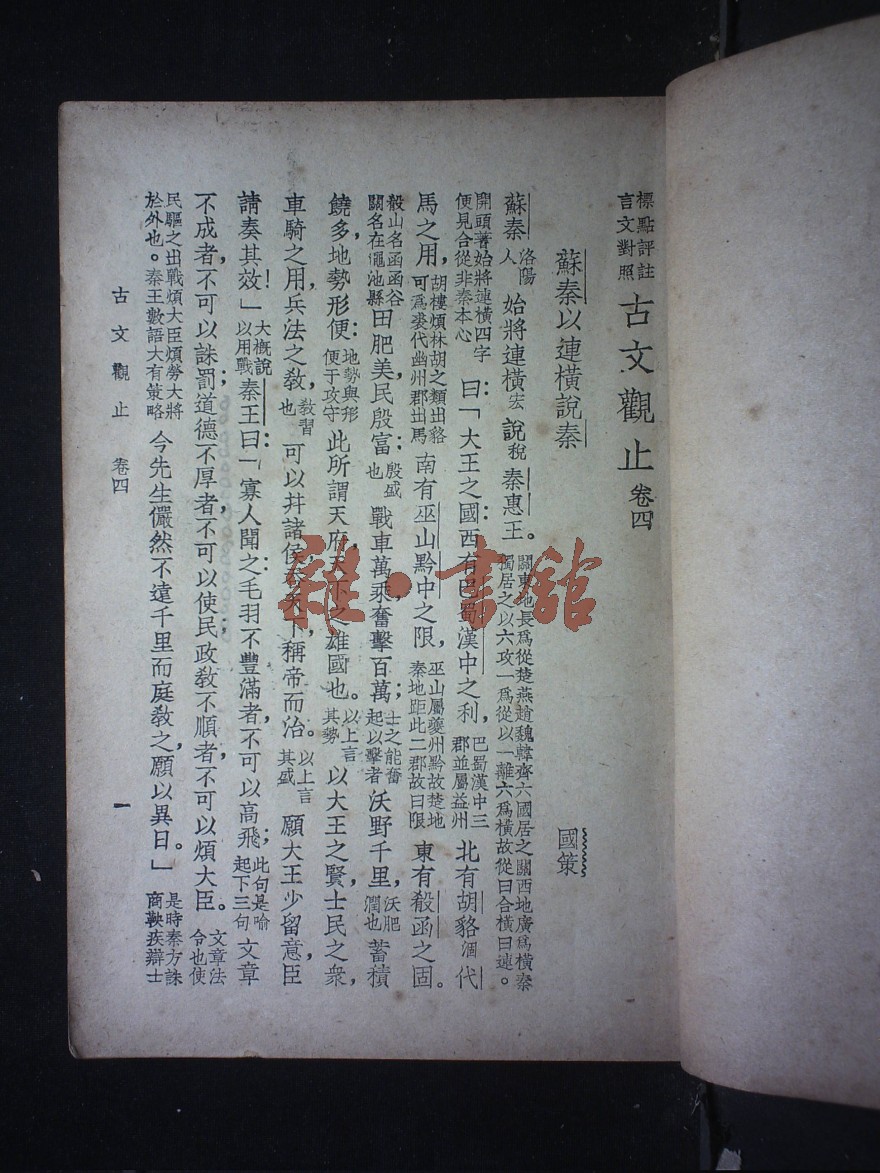 標點評註言文對照 古文觀止 卷四
蘇秦以連橫說秦 國策
蘇秦洛陽人始將連橫宏說稅秦惠王。關東地長爲從楚燕趙魏韓齊六國居之關西地廣爲橫秦獨居之以六攻一爲從以一離六爲橫故從曰合橫曰連。
開頭著始將連橫四字便見合從非秦本心曰：「大王之國西有巴蜀漢中之利，巴蜀漢中三郡並屬益州北有胡貉涸代
馬之用，胡樓煩林胡之類出貉可爲裘代幽州郡出馬南有巫山黔中之限，巫山屬夔州黔故楚地秦地距此二郡故曰限東有殽函之固。
殽山名函函谷關名在澠池縣田肥美民殷富：殷盛也戰車萬乘奮擊百萬；士之能奮起以擊者沃野千里，沃肥潤也蓄積
饒多地勢形便：地勢與形便于攻守此所謂天府天下之雄國也。以上言其勢以大王之賢士民之衆，
車騎之用兵法之教，教習也可以幷諸侯吞天下，稱帝而治。以上言其盛願大王少留意臣
請奏其效！」大概說以用戰秦王曰：「寡人聞之：毛羽不豐滿者不可以高飛；此句是喻起下三句文章
不成者，不可以誅罰；道德不厚者，不可以使民；政教不順者，不可以煩大臣。文章法令也使
民驅之出戰煩大臣煩勞大將於外也。秦王數語大有策略今先生儼然不遠千里而庭教之，願以異日。」是時秦方誅商鞅疾辯士
古文觀止 卷四 一
雜·書館